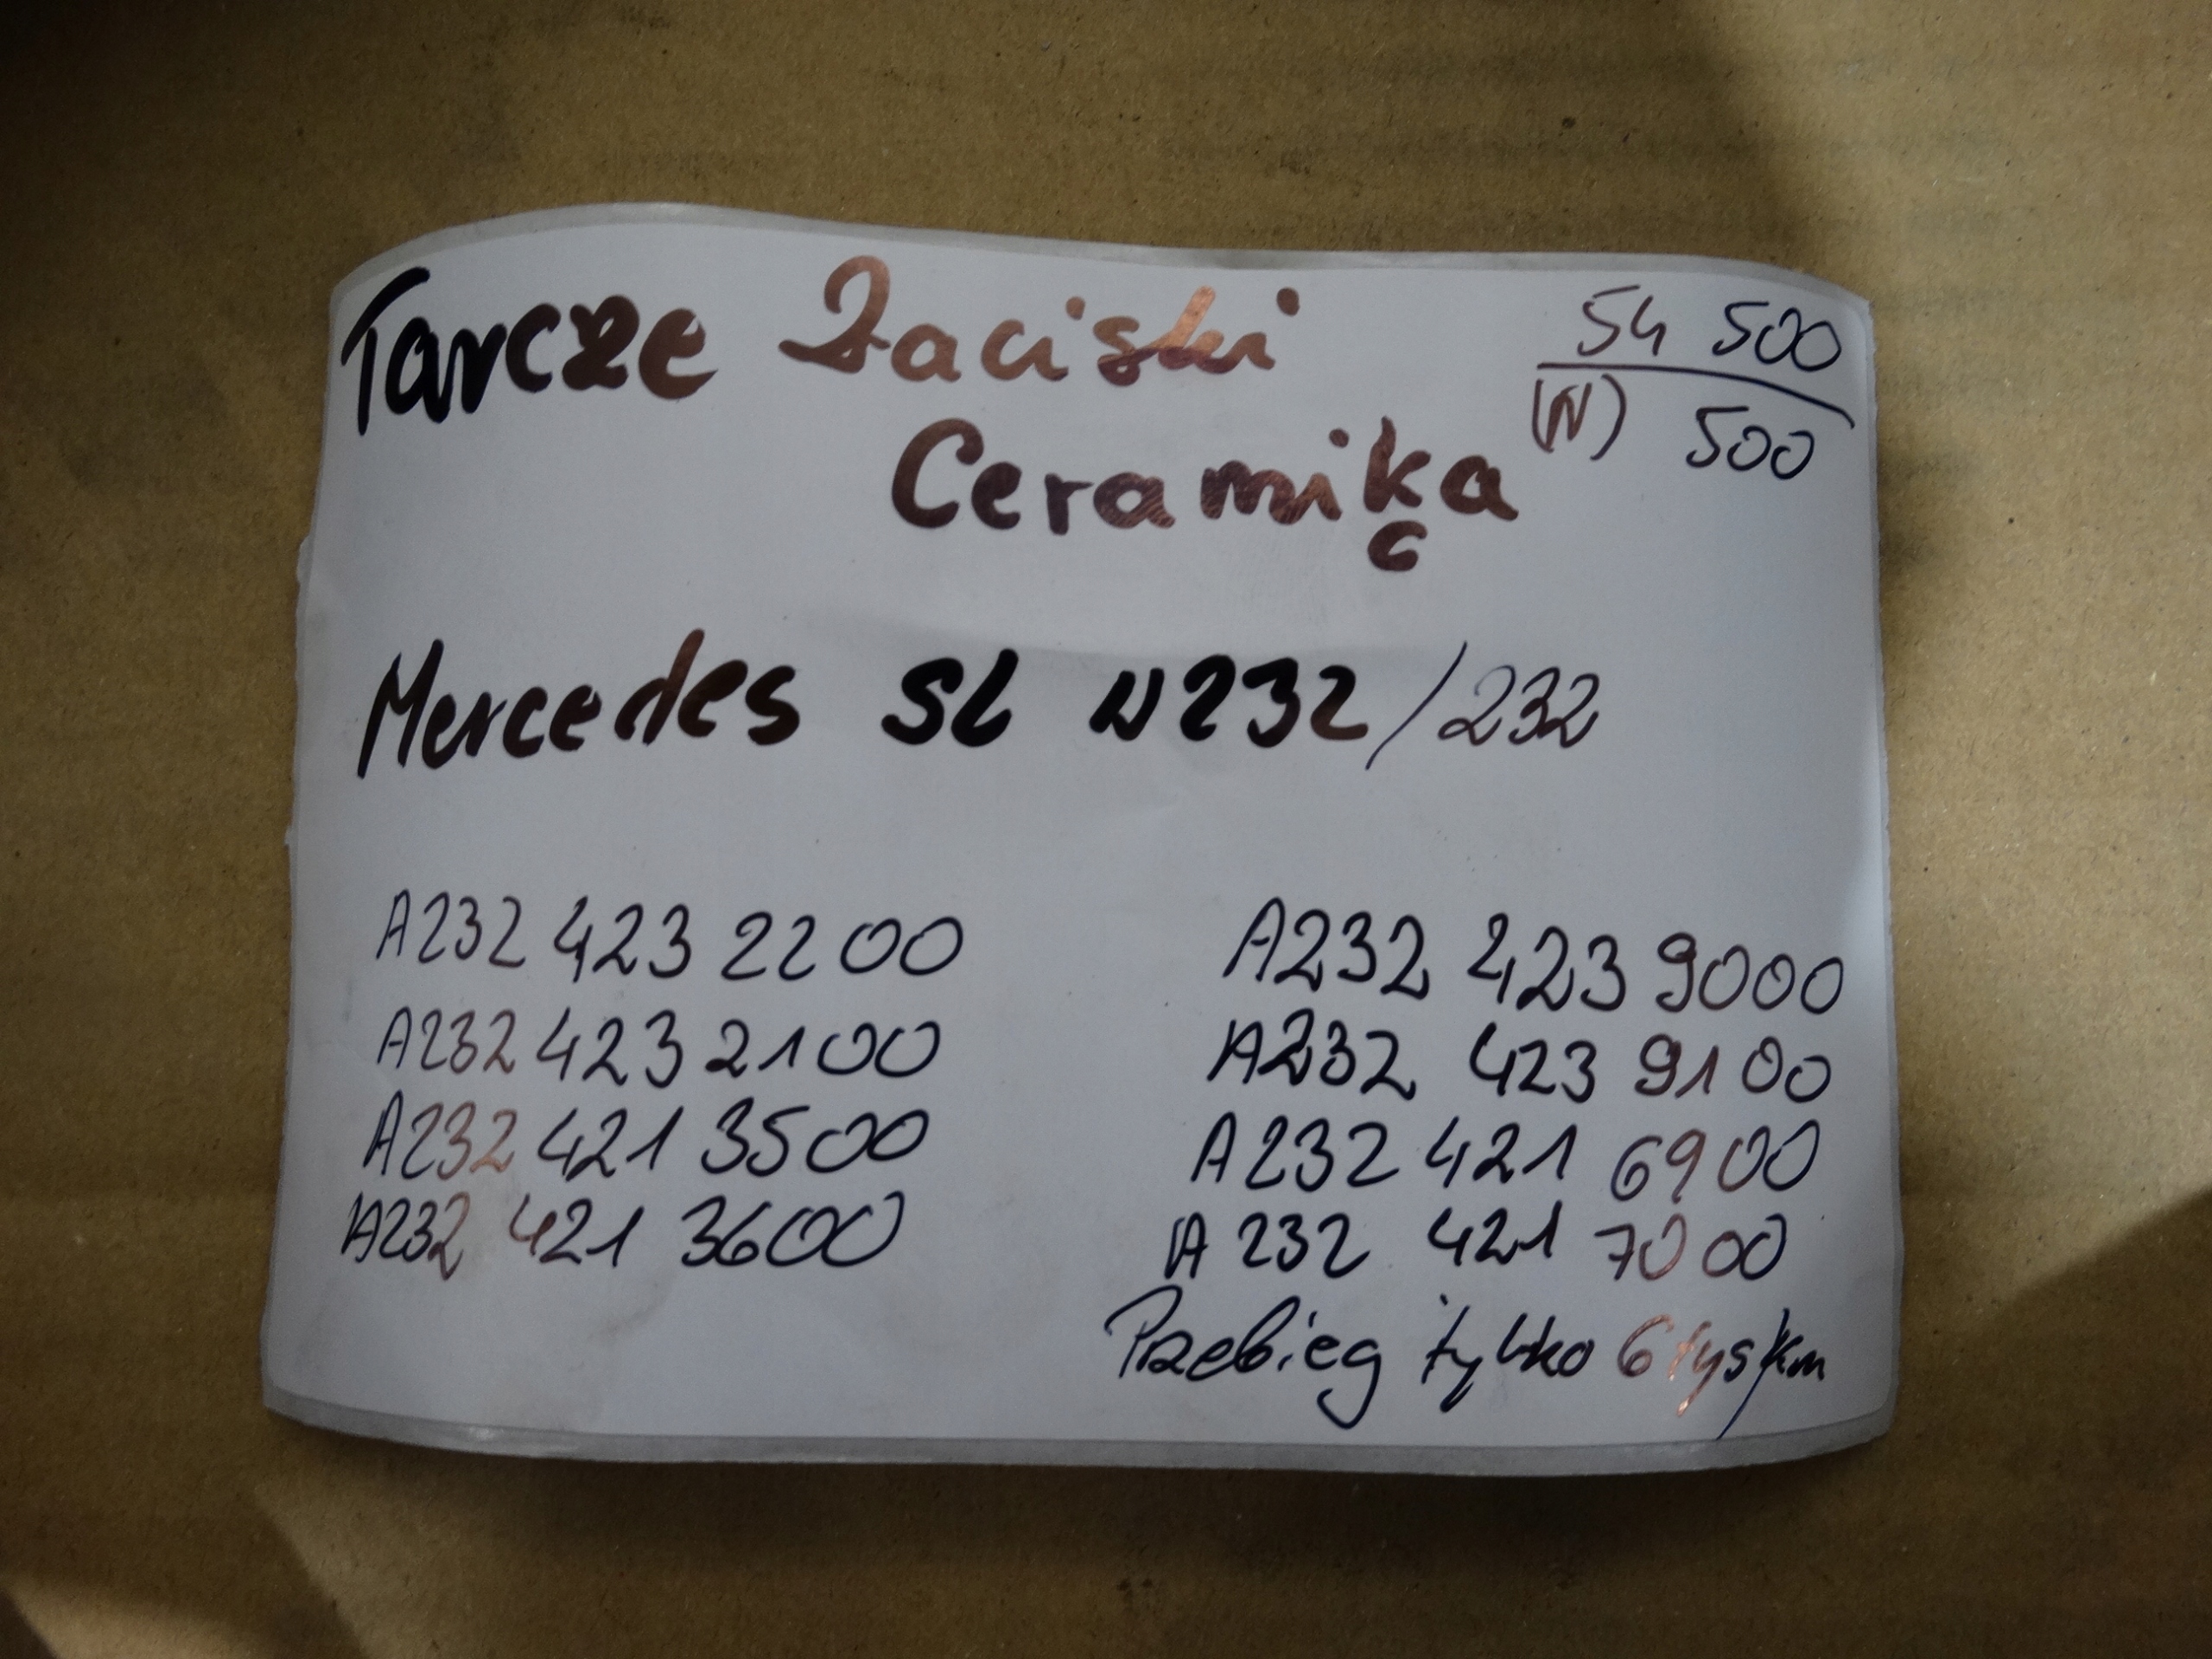 Tarcze Zaciski
54 500
(N) 500
Ceramika
c
Mercedes SL W232/232
A232 423 2200
A232 423 2100
A232 421 3500
A232 421 3600
A232 423 9000
A232 423 9100
A232 421 6900
A232 421 7000
Przebieg tylko 6 tys/km